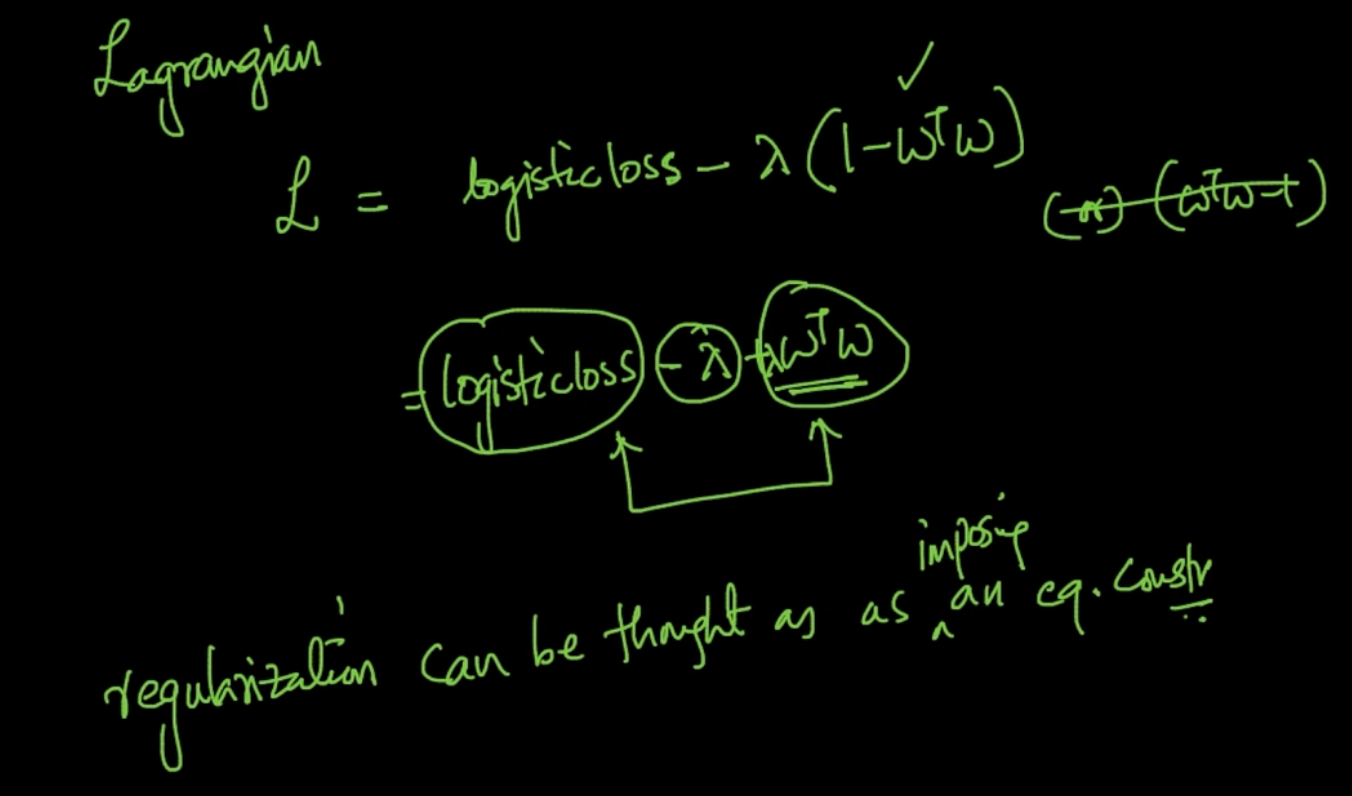 Lagrangian
ℒ = logistic loss - λ (1 - wᵀw)
(wᵀw-1)
= logistic loss - λ + λwᵀw
imposing
regularization can be thought as as ^ an eq. constr